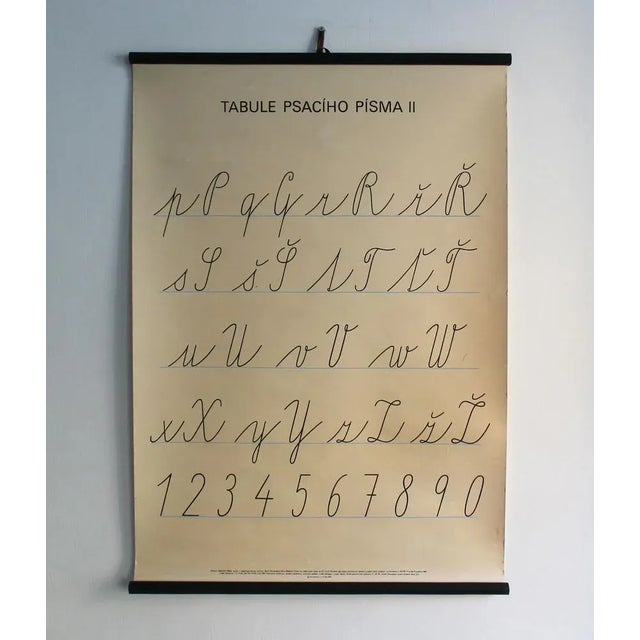 TABULE PSACÍHO PÍSMA II
p P q Q r R ř Ř
s S š Š t T ť Ť
u U v V w W
x X y Y z Z ž Ž
1 2 3 4 5 6 7 8 9 0